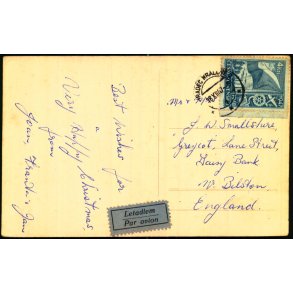 Best Wishes for
a
Very Happy Christmas,
from
Jean, Frank & Jan
HRADEC KRÁLOVÉ
Mr &
J. W. Smallshire,
Greycot, Lane Street,
Daisy Bank
Nr. Bilston
England.
Letadlem
Par avion